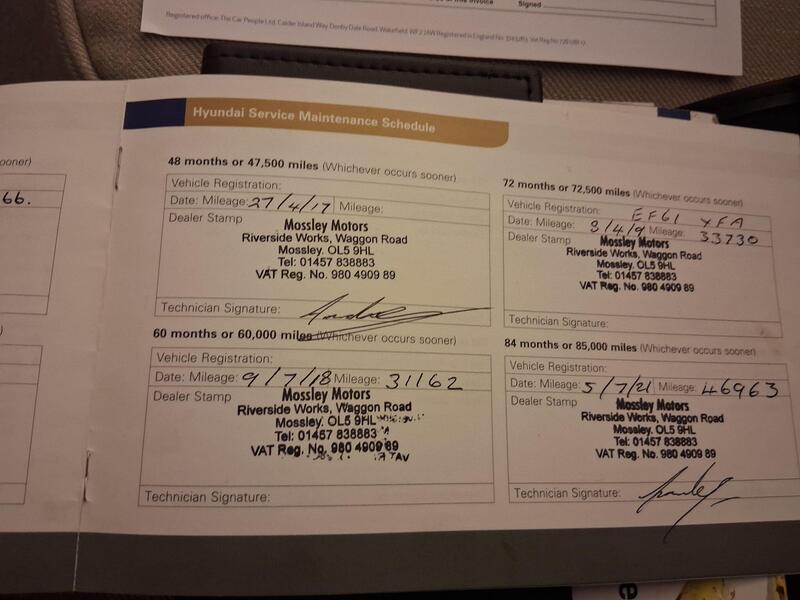 Signed
Registered office: The Car People Ltd, Calder Island Way, Denby Dale Road, Wakefield, WF2 7AW Registered in England No.
Hyundai Service Maintenance Schedule
ooner)
66.
48 months or 47,500 miles (Whichever occurs sooner)
Vehicle Registration:
Date: Mileage: 27/4/17 Mileage:
Dealer Stamp
Mossley Motors
Riverside Works, Waggon Road
Mossley. OL5 9HL
Tel: 01457 838883
VAT Reg. No. 980 4909 89
Technician Signature:
60 months or 60,000 miles (Whichever occurs sooner)
Vehicle Registration:
Date: Mileage: 9/7/18 Mileage: 31162
Dealer Stamp
Mossley Motors
Riverside Works, Waggon Road
Mossley. OL5 9HL
Tel: 01457 838883
VAT Reg. No. 980 4909 89
Technician Signature:
72 months or 72,500 miles (Whichever occurs sooner)
Vehicle Registration: EF61 XFA
Date: Mileage: 3/4/9 Mileage: 33730
Dealer Stamp
Mossley Motors
Riverside Works, Waggon Road
Mossley. OL5 9HL
Tel: 01457 838883
VAT Reg. No. 980 4909 89
Technician Signature:
84 months or 85,000 miles (Whichever occurs sooner)
Vehicle Registration:
Date: Mileage: 5/7/21 Mileage: 46963
Dealer Stamp
Mossley Motors
Riverside Works, Waggon Road
Mossley. OL5 9HL
Tel: 01457 838883
VAT Reg. No. 980 4909 89
Technician Signature: